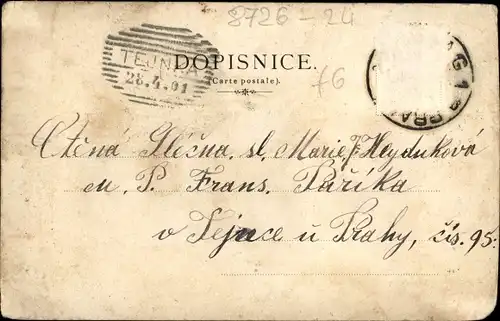 8726-24
TEJN
28.4.01
DOPISNICE.
(Carte postale).
76
AG 1
PRA
Ctěná Slečna. sl. Marie Heyduková
u. P. Frans. Paříka
v Tejnce u Prahy, čís. 95.